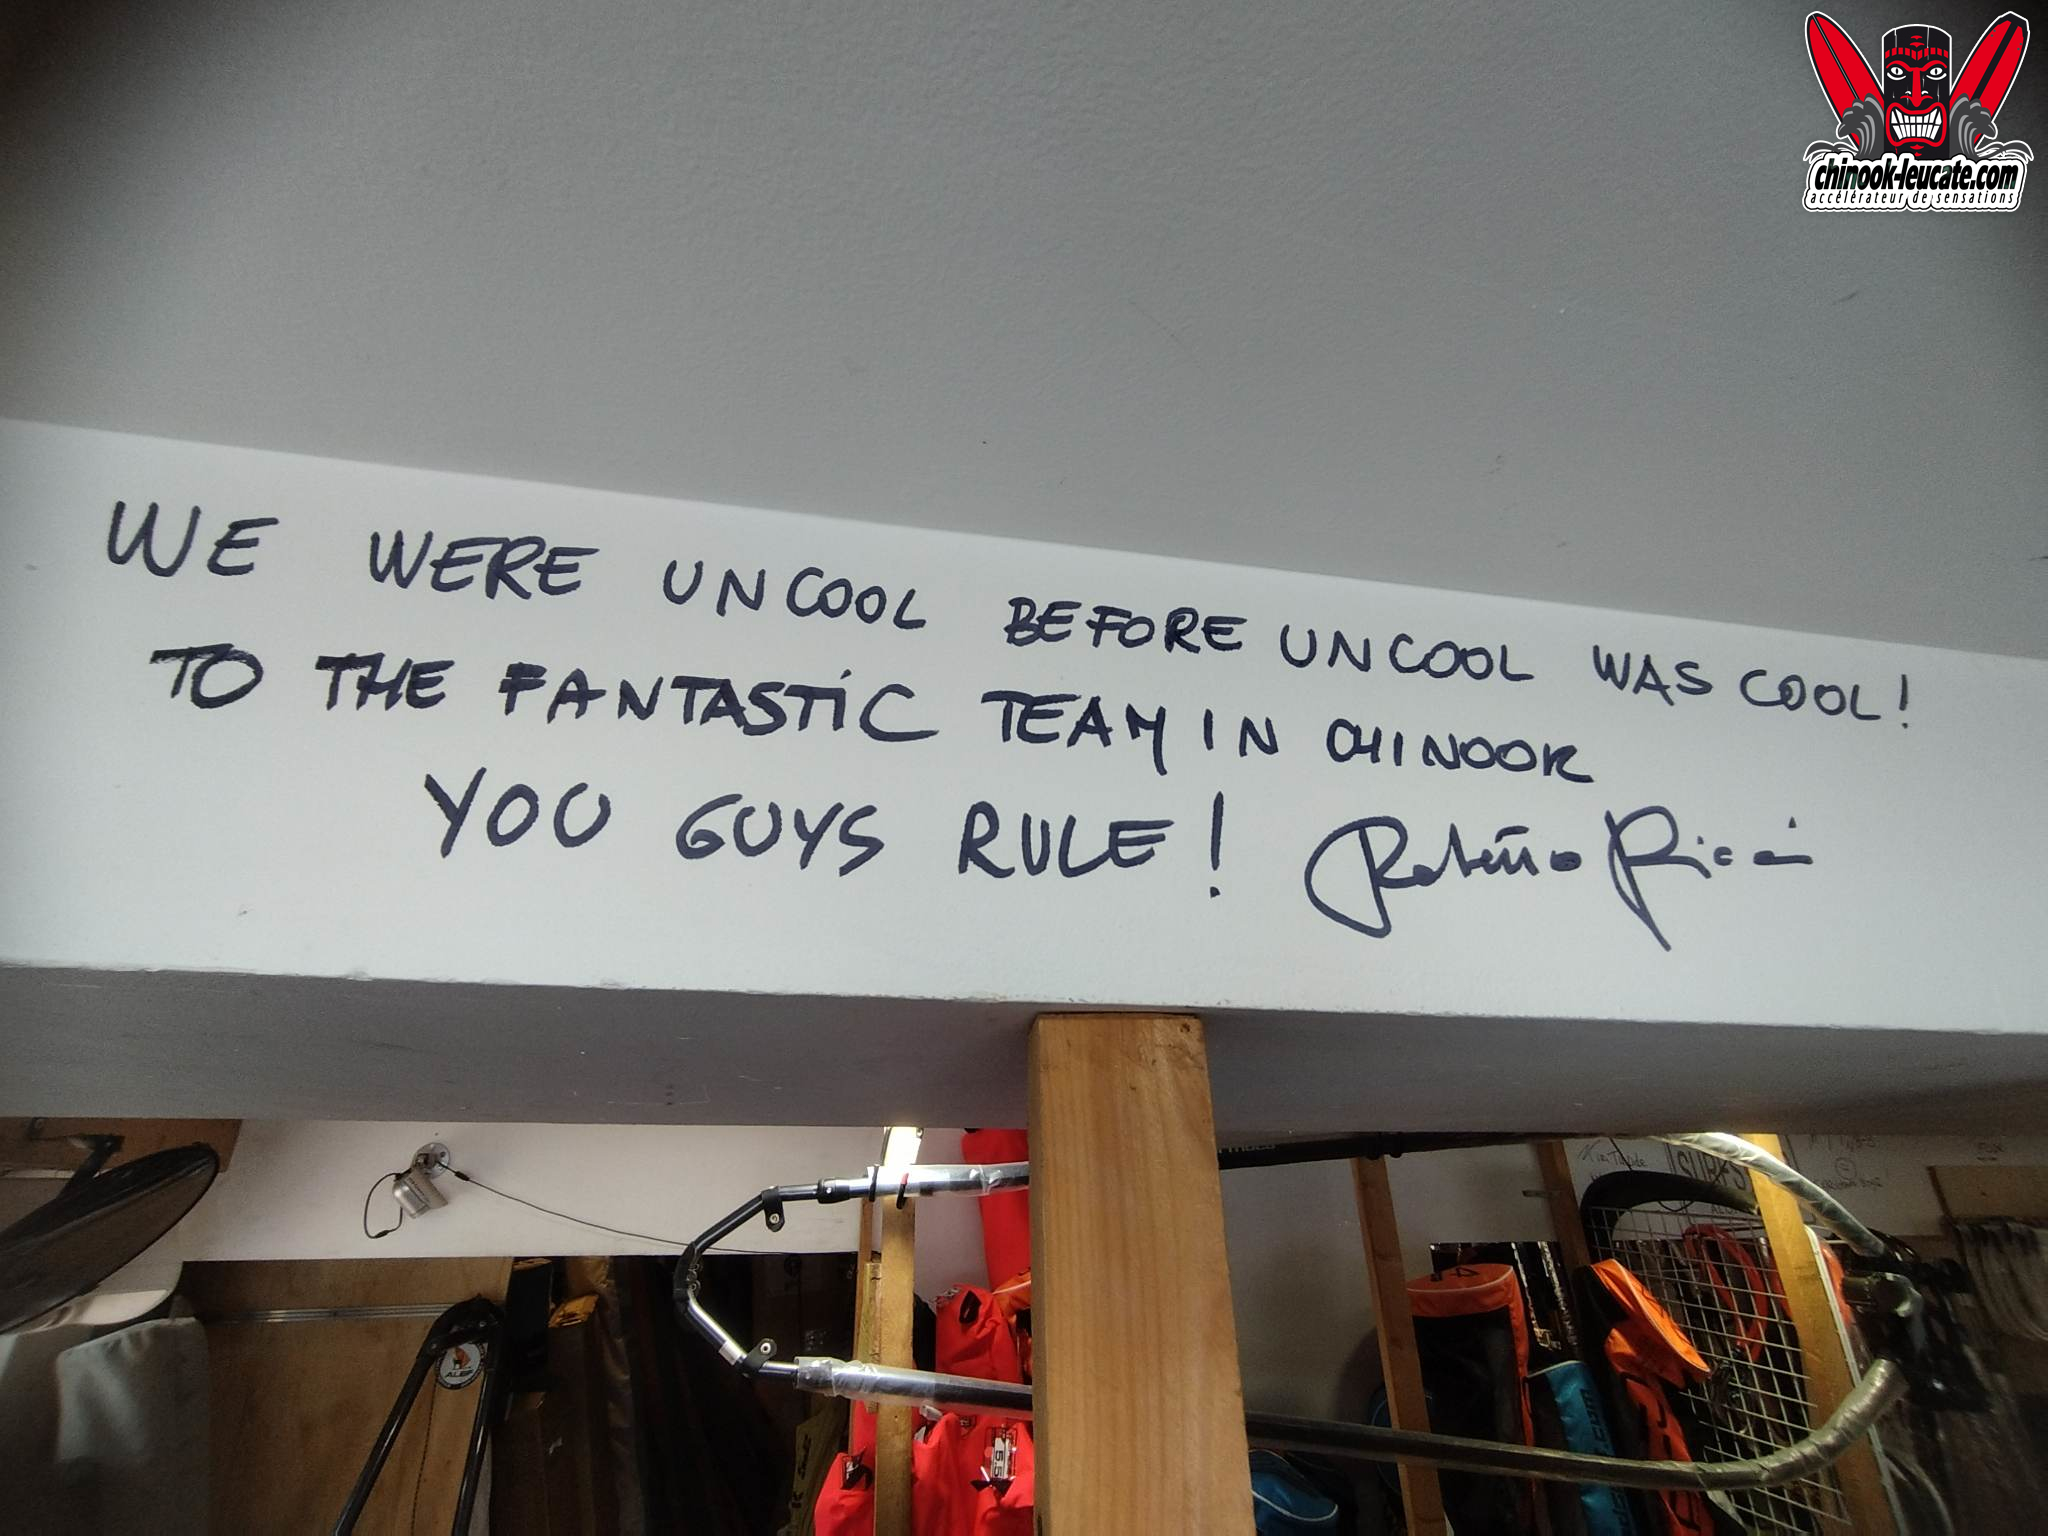 chinook-leucate.com
accélérateur de sensations
WE WERE UNCOOL BEFORE UNCOOL WAS COOL!
TO THE FANTASTIC TEAM IN CHINOOK
YOU GUYS RULE! Roberto Ricci
SURFS
5.5